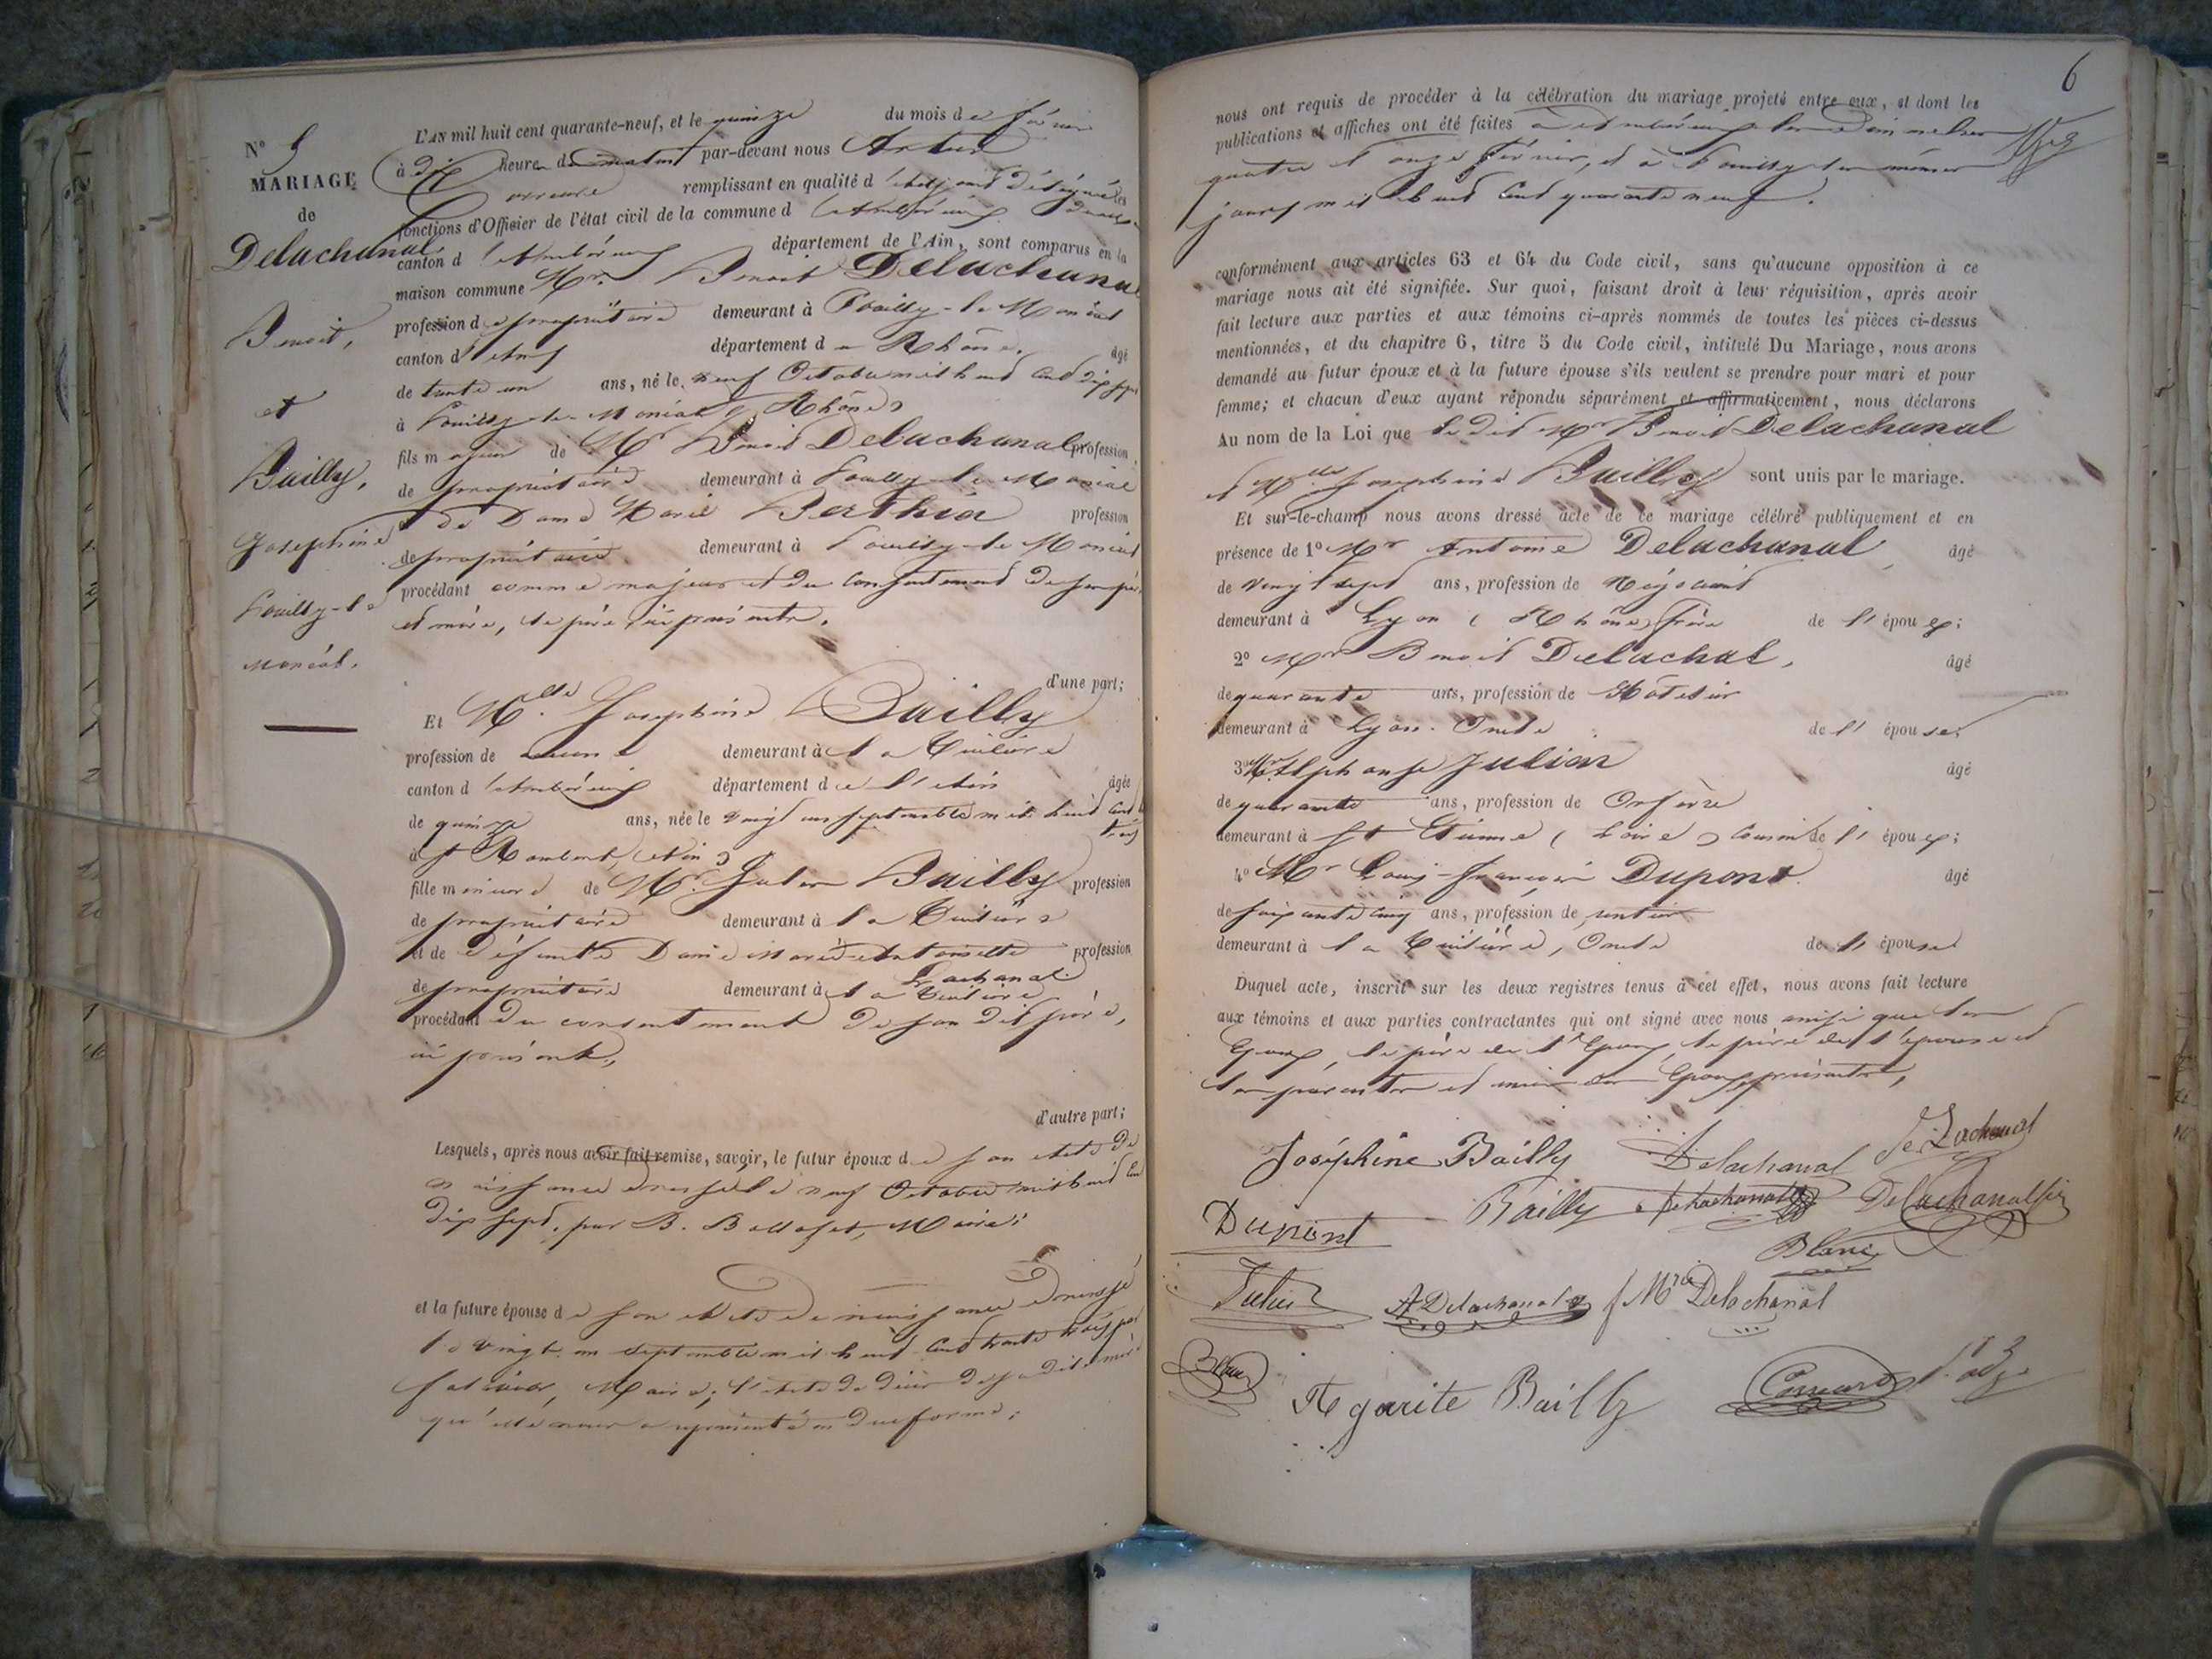 N° 5
MARIAGE
de
Delachanal
Benoit,
et
Bailly,
Josephine
Pouilly-le
Monial.
L'AN mil huit cent quarante-neuf, et le quinze du mois de février
à dix heures du matin par-devant nous Artur
remplissant en qualité d'adjoint délégué les
fonctions d'Officier de l'état civil de la commune d'Ambérieux
canton d'Ambérieux département de l'Ain, sont comparus en la
maison commune Mr. Benoit Delachanal
profession de propriétaire demeurant à Pouilly-le Monial
canton d'Anse département du Rhône, âgé
de trente un ans, né le neuf Octobre mil huit cent dix sept
à Pouilly-le-Monial (Rhône)
fils majeur de Mr Benoit Delachanal profession
de propriétaire demeurant à Pouilly-le Monial
et de Dame Marie Berthier profession
de propriétaire demeurant à Pouilly-le Monial
procédant comme majeur et du consentement de ses père
et mère, le père ici présent.
d'une part;
Et Mlle Josephine Bailly
profession de demeurant à la Tuilière
canton d'Ambérieux département de l'Ain âgée
de quinze ans, née le vingt un septembre mil huit cent
trois
à St Rambert (Ain)
fille mineure de Mr. Jules Bailly profession
de propriétaire demeurant à la Tuilière
et de défunte Dame Marie Antoinette profession
Lachanal
de propriétaire demeurant à la Tuilière
procédant du consentement de son dit père,
ici présent,
d'autre part;
Lesquels, après nous avoir fait remise, savoir, le futur époux de son acte de
naissance dressé le neuf Octobre mil huit cent
dix sept, par B. Maire;
et la future épouse de son acte de naissance dressé
le vingt un septembre mil huit cent trente trois par
Maire; l'acte de décès de sa dite mère
qu'elle nous a représenté en due forme;
6
nous ont requis de procéder à la célébration du mariage projeté entre eux, et dont les
publications et affiches ont été faites à Ambérieux les dimanches
quatre et onze février, et à Pouilly les mêmes
jours mil huit cent quarante neuf.
conformément aux articles 63 et 64 du Code civil, sans qu'aucune opposition à ce
mariage nous ait été signifiée. Sur quoi, faisant droit à leur réquisition, après avoir
fait lecture aux parties et aux témoins ci-après nommés de toutes les pièces ci-dessus
mentionnées, et du chapitre 6, titre 5 du Code civil, intitulé Du Mariage, nous avons
demandé au futur époux et à la future épouse s'ils veulent se prendre pour mari et pour
femme; et chacun d'eux ayant répondu séparément et affirmativement, nous déclarons
Au nom de la Loi que le dit Mr Benoit Delachanal
et Mlle Josephine Bailly sont unis par le mariage.
Et sur-le-champ nous avons dressé acte de ce mariage célébré publiquement et en
présence de 1° Mr Antoine Delachanal, âgé
de vingt sept ans, profession de Négociant
demeurant à Lyon (Rhône) frère de l'époux;
2° Mr Benoit Delachal, âgé
de quarante ans, profession de Hôtelier
demeurant à Lyon. Oncle de l'épouse;
3° Mr Alphonse Julien âgé
de quarante ans, profession de Orfèvre
demeurant à St Etienne (Loire) Cousin de l'époux;
4° Mr Louis-François Dupont. âgé
de soixante cinq ans, profession de rentier
demeurant à la Tuilière, Oncle de l'épouse
Duquel acte, inscrit sur les deux registres tenus à cet effet, nous avons fait lecture
aux témoins et aux parties contractantes qui ont signé avec nous ainsi que les
Epoux, le père de l'Epoux, le père de l'épouse et
les parents et amis des Epoux présents,
Joséphine Bailly Delachanal
Dupont Bailly Delachanal Delachanal
Blanc
Julien A Delachanal Delachanal
Blanc
Bailly